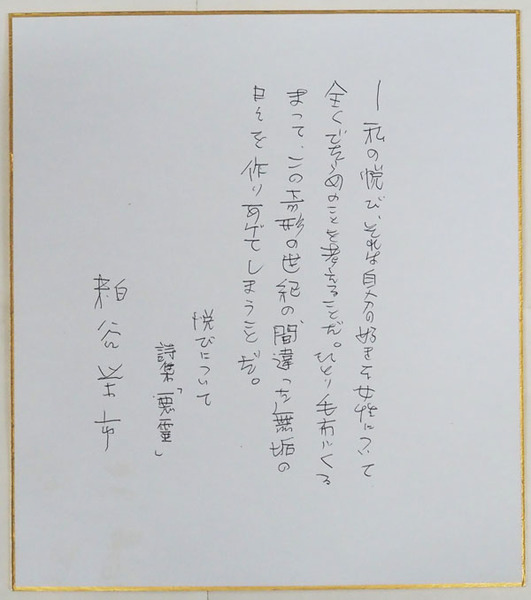 ―私の悦び、それは自分の好きな女性について
全くでたらめのことを考えることだ。ひとり毛布にくる
まって、この奇形の世紀の、間違った無垢の
日々を作りあげてしまうことだ。
悦びについて
詩集「悪霊」
粕谷栄市